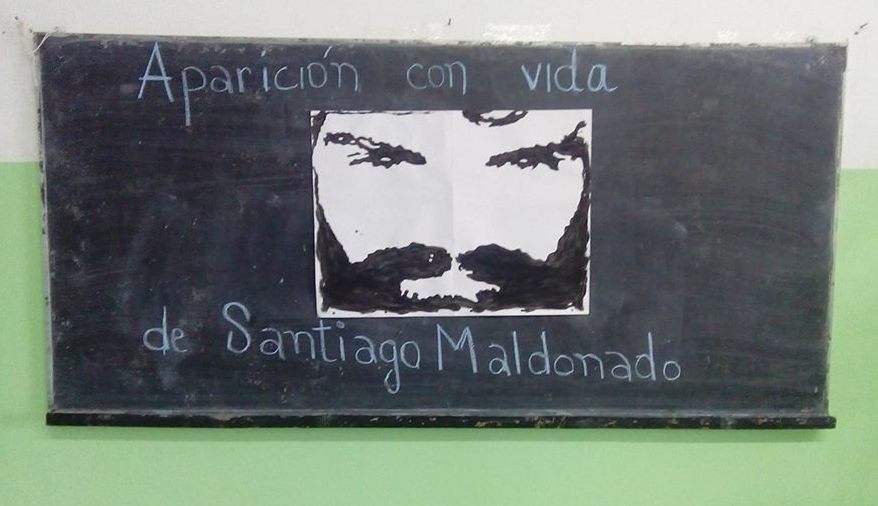 Aparición con vida
de Santiago Maldonado